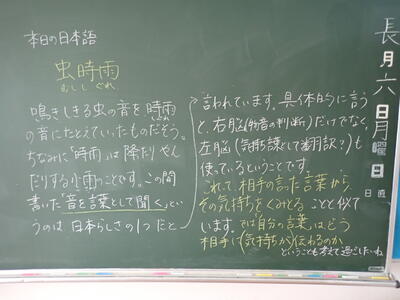 本日の日本語
虫時雨
むししぐれ
鳴きしきる虫の音を、時雨
しぐれ
の音にたとえていったものだそう。
ちなみに「時雨」は降たりやん
だりする小雨のことです。この間
書いた「音を言葉として聞く」とい
うのは日本らしさの1つだと
言われています。具体的に言う
と、右脳(音の判断)だけでなく
左脳(気持ち訳として翻訳?)も
使っているということです。
これって、相手の言った言葉から
その気持ちをくみとることと似て
います。では「自分の言葉」はどう
相手に(気持ちが)伝わるのか
ということも考えて過ごしたいね
長月六日月曜日
日直